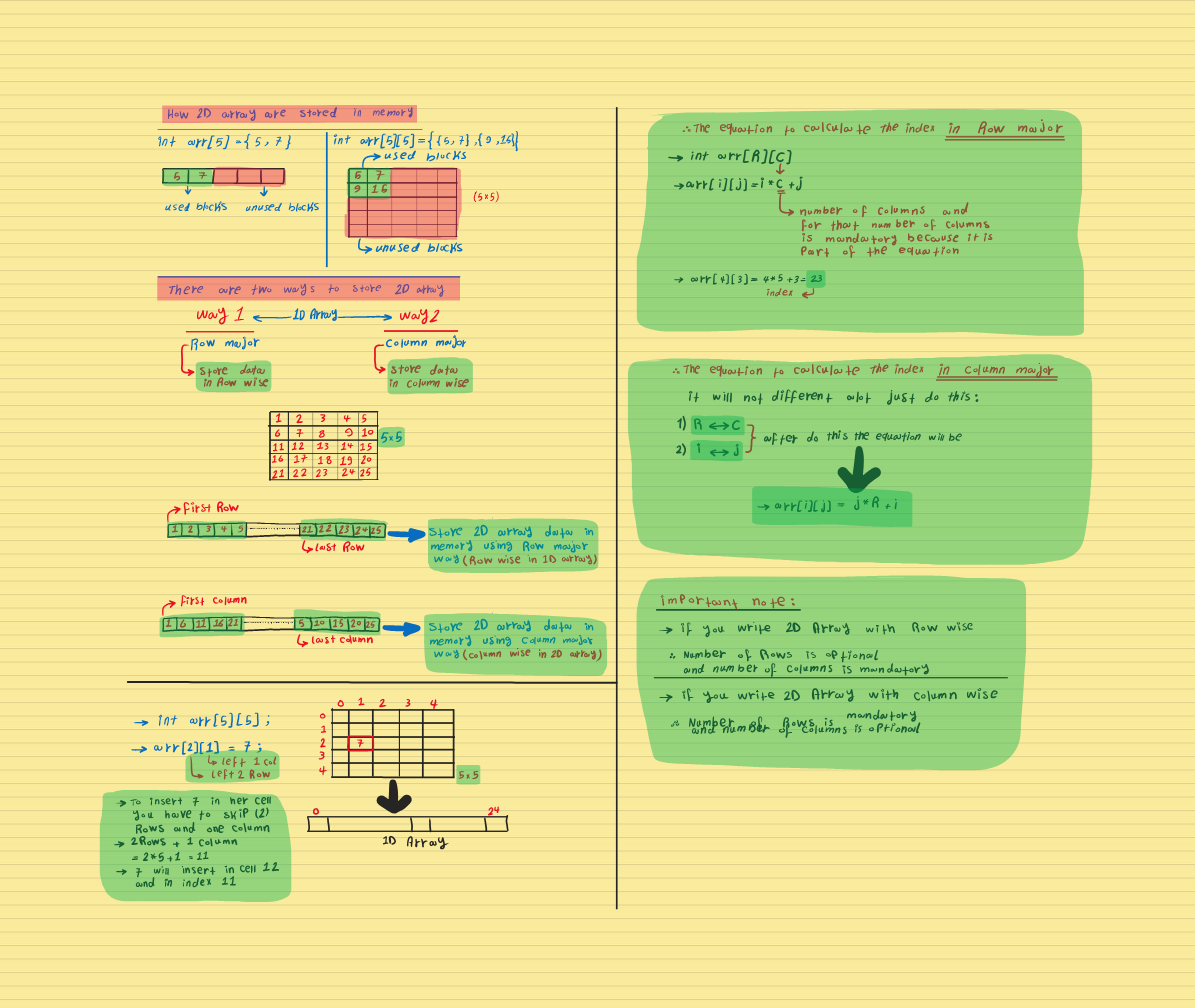 How 2D array are stored in memory
int arr[5] = { 5, 7 }
5 7
used blocks unused blocks
int arr[5][5] = { {5, 7} , {9, 16}}
used blocks
5 7
9 16
(5x5)
unused blocks
There are two ways to store 2D array
way 1 1D Array way2
Row major Column major
Store data
in Row wise
Store data
in column wise
1 2 3 4 5
6 7 8 9 10
11 12 13 14 15
16 17 18 19 20
21 22 23 24 25
5x5
First Row
1 2 3 4 5 21 22 23 24 25
Last Row
Store 2D array data in
memory using Row major
way (Row wise in 1D array)
First column
1 6 11 16 21 5 10 15 20 25
Last column
Store 2D array data in
memory using Column major
way (column wise in 2D array)
→ int arr[5][5] ;
→ arr[2][1] = 7 ;
left 1 col
left 2 Row
0 1 2 3 4
0
1
2 7
3
4
5x5
0 24
1D Array
→ To insert 7 in her cell
you have to skip (2)
Rows and one column
→ 2Rows + 1 column
= 2*5+1 = 11
→ 7 will insert in cell 12
and in index 11
∴ The equation to calculate the index in Row major
→ int arr[R][C]
→ arr[i][j] = i * C + j
number of columns and
for that number of columns
is mandatory because it is
Part of the equation
→ arr[4][3] = 4*5 + 3 = 23
index
∴ The equation to calculate the index in column major
it will not different alot just do this :
1) R ↔ C
2) i ↔ j
after do this the equation will be
→ arr[i][j] = j * R + i
important note :
→ if you write 2D Array with Row wise
∴ Number of Rows is optional
and number of columns is mandatory
→ if you write 2D Array with column wise
∴ Number of Rows is mandatory
and number of columns is optional